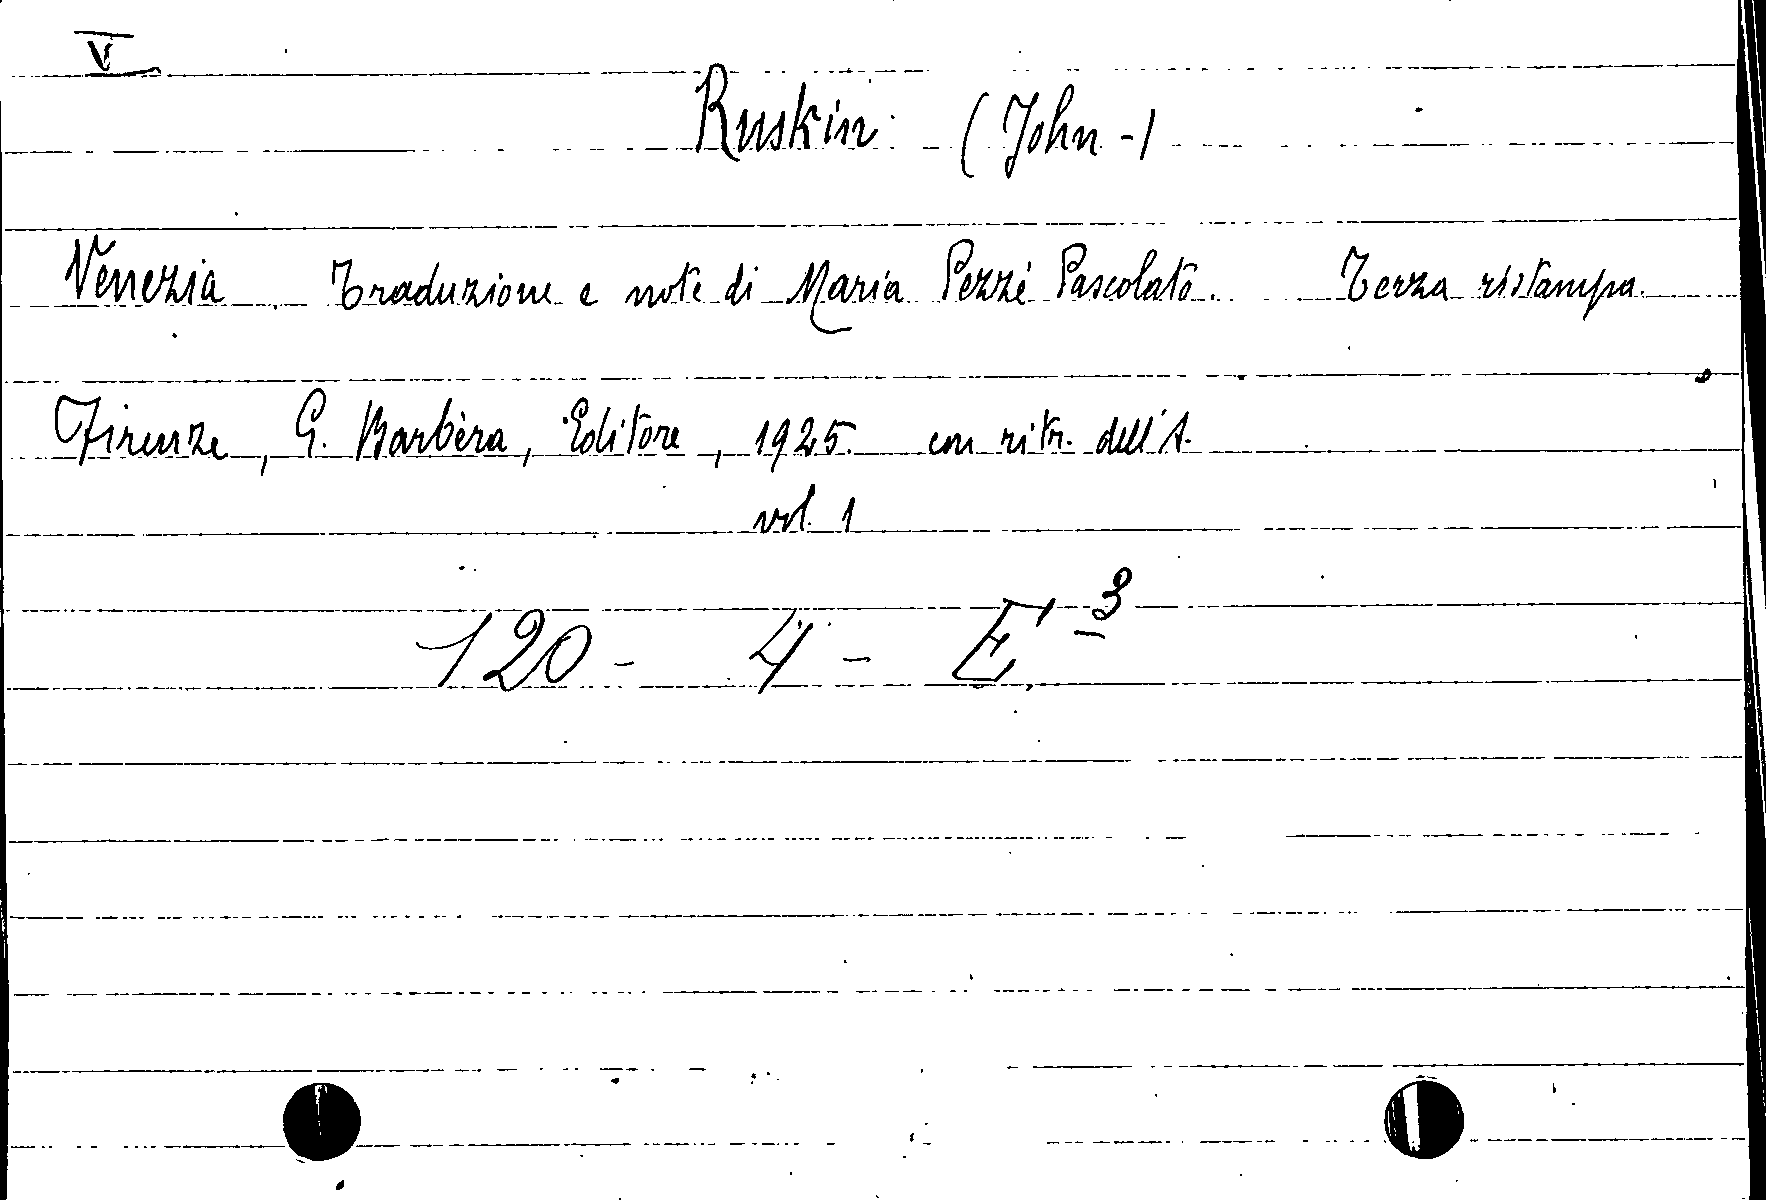 V
Ruskin (John -)
Venezia. Traduzione e note di Maria Pezzé Pascolato. Terza ristampa.
Firenze, G. Barbèra, Editore, 1925. con ritr. dell'A.
vol. 1
120 - 4 - E - 3